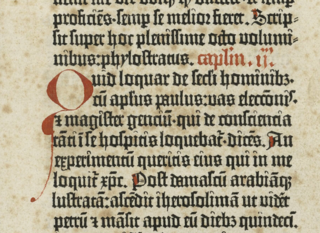 proficiēs: semp se melior fieret. Scrip-
sit super hoc plenissime octo volumi-
nibus: phylostratus. capl'm .ij.
Quid loquar de secli hominibz.
cū aplus paulus: vas electōnis.
⁊ magister genciū. qui de consciencia
tāti ī se hospitis loquebat. dicēs. An
experimentum queritis eius qui in me
loquit̄ xp̄c. Post damascū arabiāqz
lustratā: ascēdit iherosolimā ut videt̄
petrū ⁊ māsit apud eū diebz quindecī.